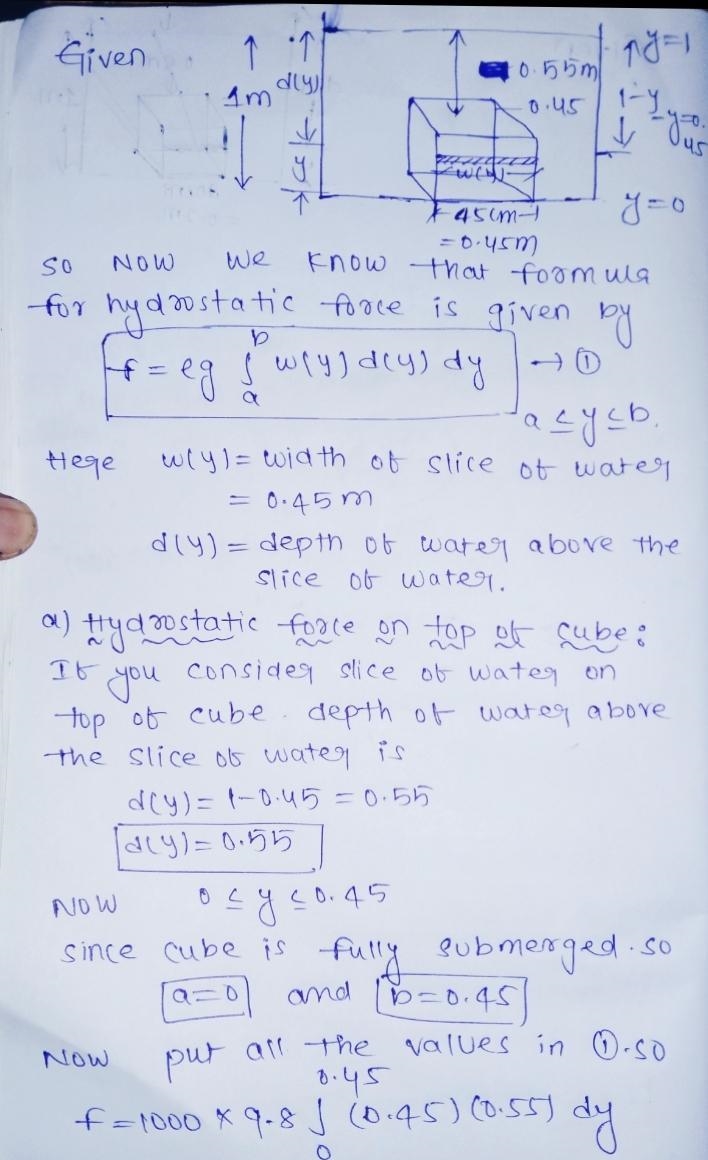 Given
1m
d(y)
y
0.55m
0.45
w(y)
45cm
= 0.45m
y=1
1-y
y=0.45
y=0
so Now we know that formula
for hydrostatic force is given by
f = ρg ∫ₐᵇ w(y) d(y) dy → ①
a ≤ y ≤ b.
Here w(y) = width of slice of water
= 0.45 m
d(y) = depth of water above the
slice of water.
a) Hydrostatic force on top of cube:
If you consider slice of water on
top of cube. depth of water above
the slice of water is
d(y) = 1-0.45 = 0.55
d(y) = 0.55
Now 0 ≤ y ≤ 0.45
since cube is fully submerged. so
a=0 and b=0.45
Now put all the values in ①. so
f = 1000 × 9.8 ∫₀^0.45 (0.45) (0.55) dy